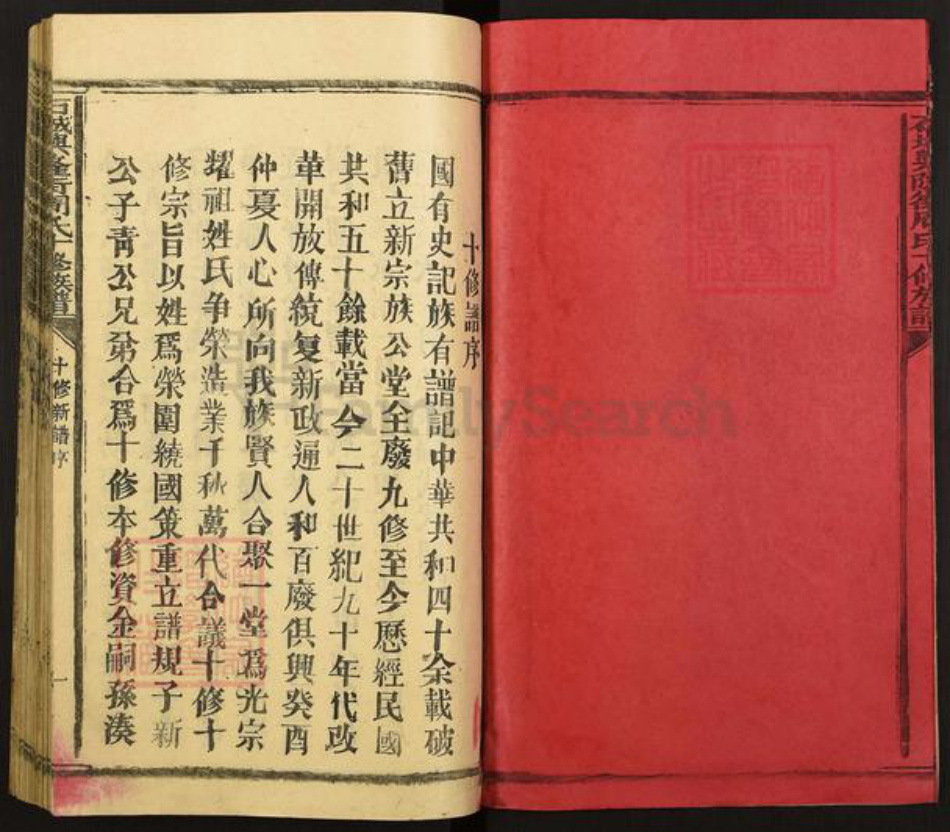 十修譜序
國有史記族有譜記中華共和四十余載破
舊立新宗族公堂全廢九修至今歷經民國
共和五十餘載當今二十世紀九十年代改
革開放傳統复新政通人和百廢俱興癸酉
仲夏人心所向我族賢人合聚一堂爲光宗
耀祖姓氏争榮造業千秋萬代合議十修十
修宗旨以姓爲榮圍繞國策重立譜規子新
公子青公兄弟合爲十修本修資金嗣孫湊
十修新譜序
一
FamilySearch